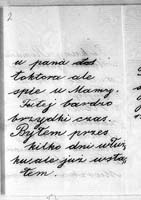 2
u pana dok
toktora ale
śpie u Mamy.
Tutej bardzo
brzydki czas.
Byłem przes
kilko dni w łuż
ku ale już wsta
łem.